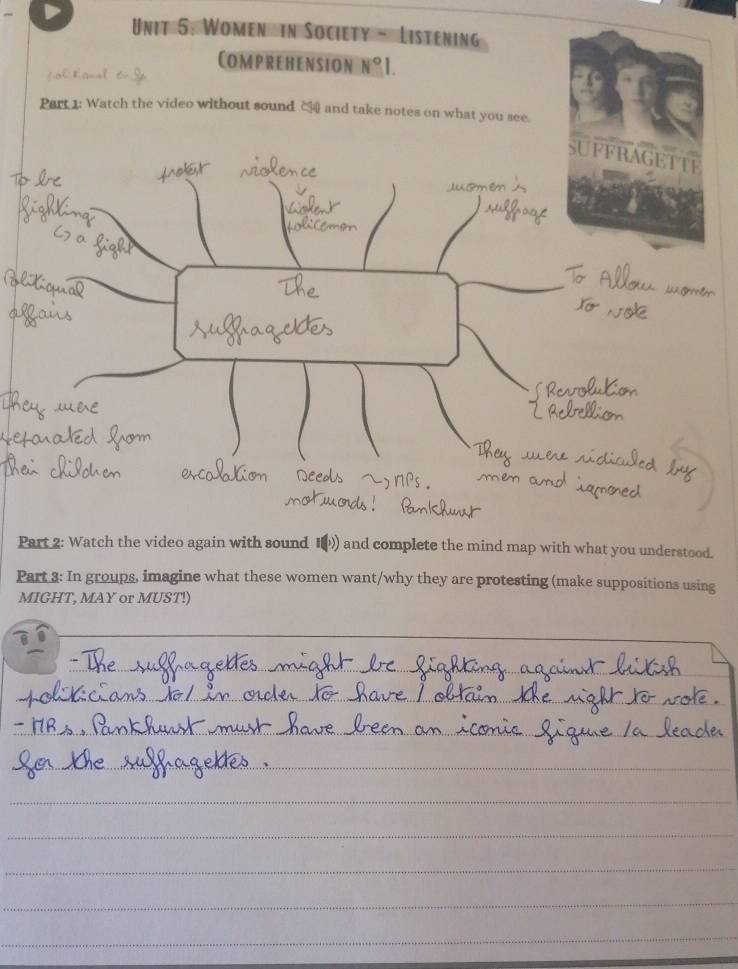 UNIT 5: WOMEN IN SOCIETY - LISTENING
COMPREHENSION N°1.
Part 1: Watch the video without sound and take notes on what you see.
SUFFRAGETTE
To be
fighting
↳ a fight
protest
violence
↓
violent
policemen
women's
suffrage
Politiqual
affairs
The
suffragettes
To Allow women
to vote
Revolution
Rebellion
They were
separated from
their children
escalation
Deeds
not words!
MPs.
Pankhurst
They were ridiculed by
men and ignored
Part 2: Watch the video again with sound and complete the mind map with what you understood.
Part 3: In groups, imagine what these women want/why they are protesting (make suppositions using
MIGHT, MAY or MUST!)
- The suffragettes might be fighting against british
politicians to/ in order to have / obtain the right to vote.
- MRs. Pankhurst must have been an iconic figure /a leader
for the suffragettes.